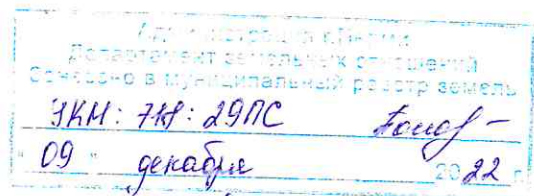 Администрация г. Перми
Департамент земельных отношений
Внесено в муниципальный реестр земель
УКН: 7КУ: 29ПС
"09" декабря 2022 г.